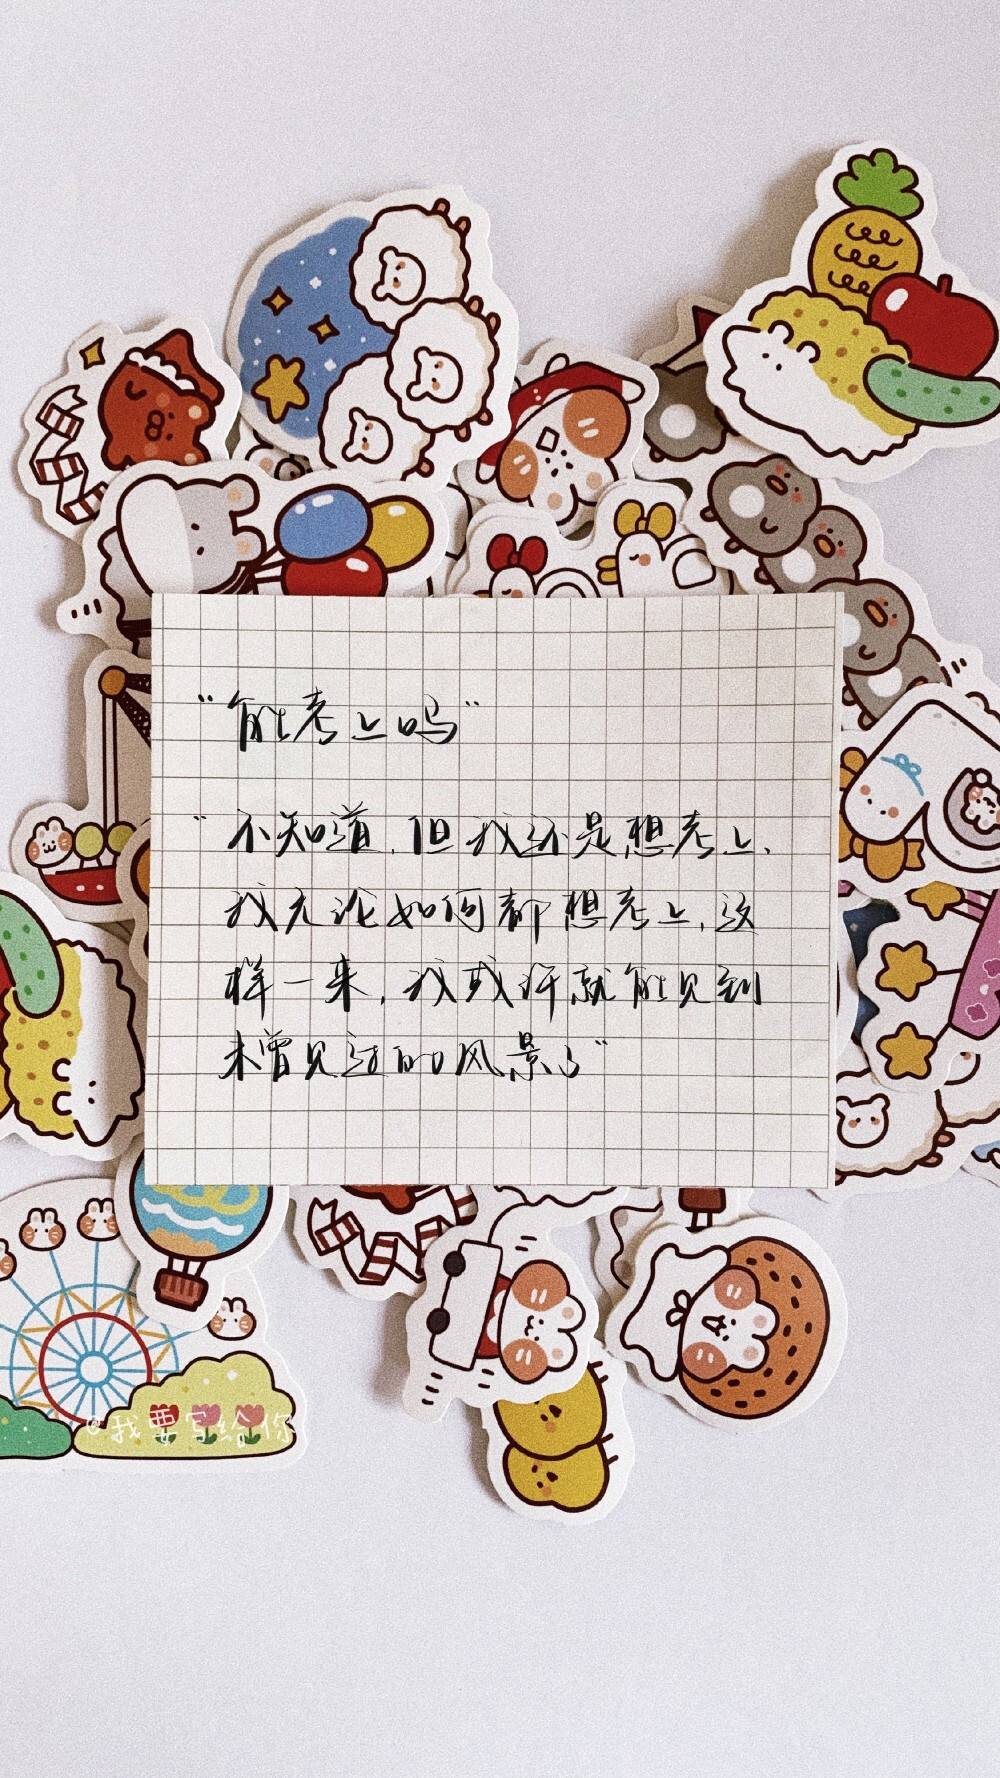 “能考上吗”
“不知道，但我还是想考上，
我无论如何都想考上，这
样一来，我或许就能见到
未曾见过的风景了”
@我要写给你